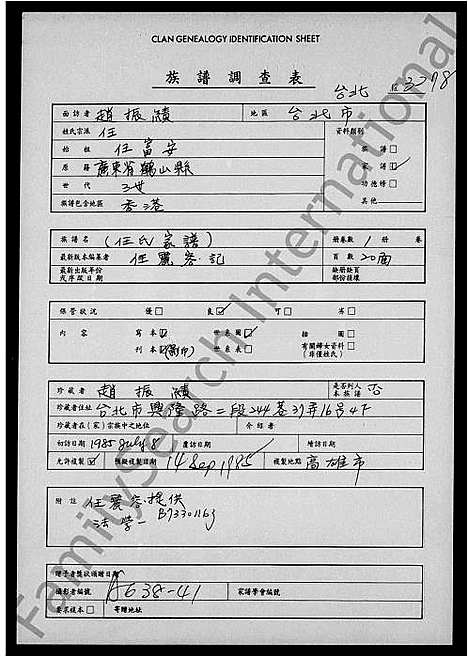 CLAN GENEALOGY IDENTIFICATION SHEET
族譜調查表
台北 3278
面訪者 趙振績 地區 台北市
姓氏宗派 任 資料類別
始祖 任富安 族譜
原籍 廣東省鶴山縣 家譜
世代 3世 功德榜
族譜包含地區 香港 其他
族譜名 (任氏家譜) 冊卷數 1 冊 卷
最新版本編纂者 任麗容.記 頁數 20面
最新出版年份或序跋日期 缺冊缺頁部份損壞
保管狀況 優 良 可 劣
內容 寫本 世系圖 插圖
刊本 (影印) 世系表 有關婦女資料(非僅姓氏)
珍藏者 趙振績 是否列入本族譜 否
珍藏者住址 台北市興隆路二段244巷37弄16號4下
珍藏者在(家)宗族中之地位 介紹者
初訪日期 1985 July 8 覆訪日期 增訪日期
允許複製 複製日期 14 Sep 1985 複製地點 高雄市
附註 任麗容提供
法學一 B7330163
贈予者獎狀頒贈日期
攝影者編號 B638-41 家譜學會編號
要求樣本 寄贈地址
FamilySearch International